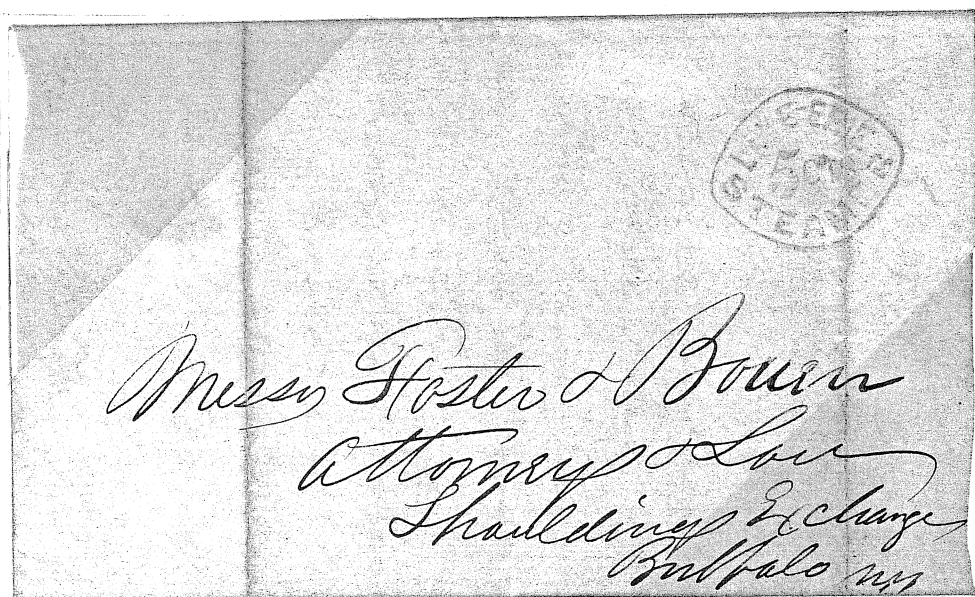 LAKE ERIE
5 CTS
STEAM
Messrs Foster & Bowen
Attorneys & Law
Shauldings Exchange
Buffalo NY